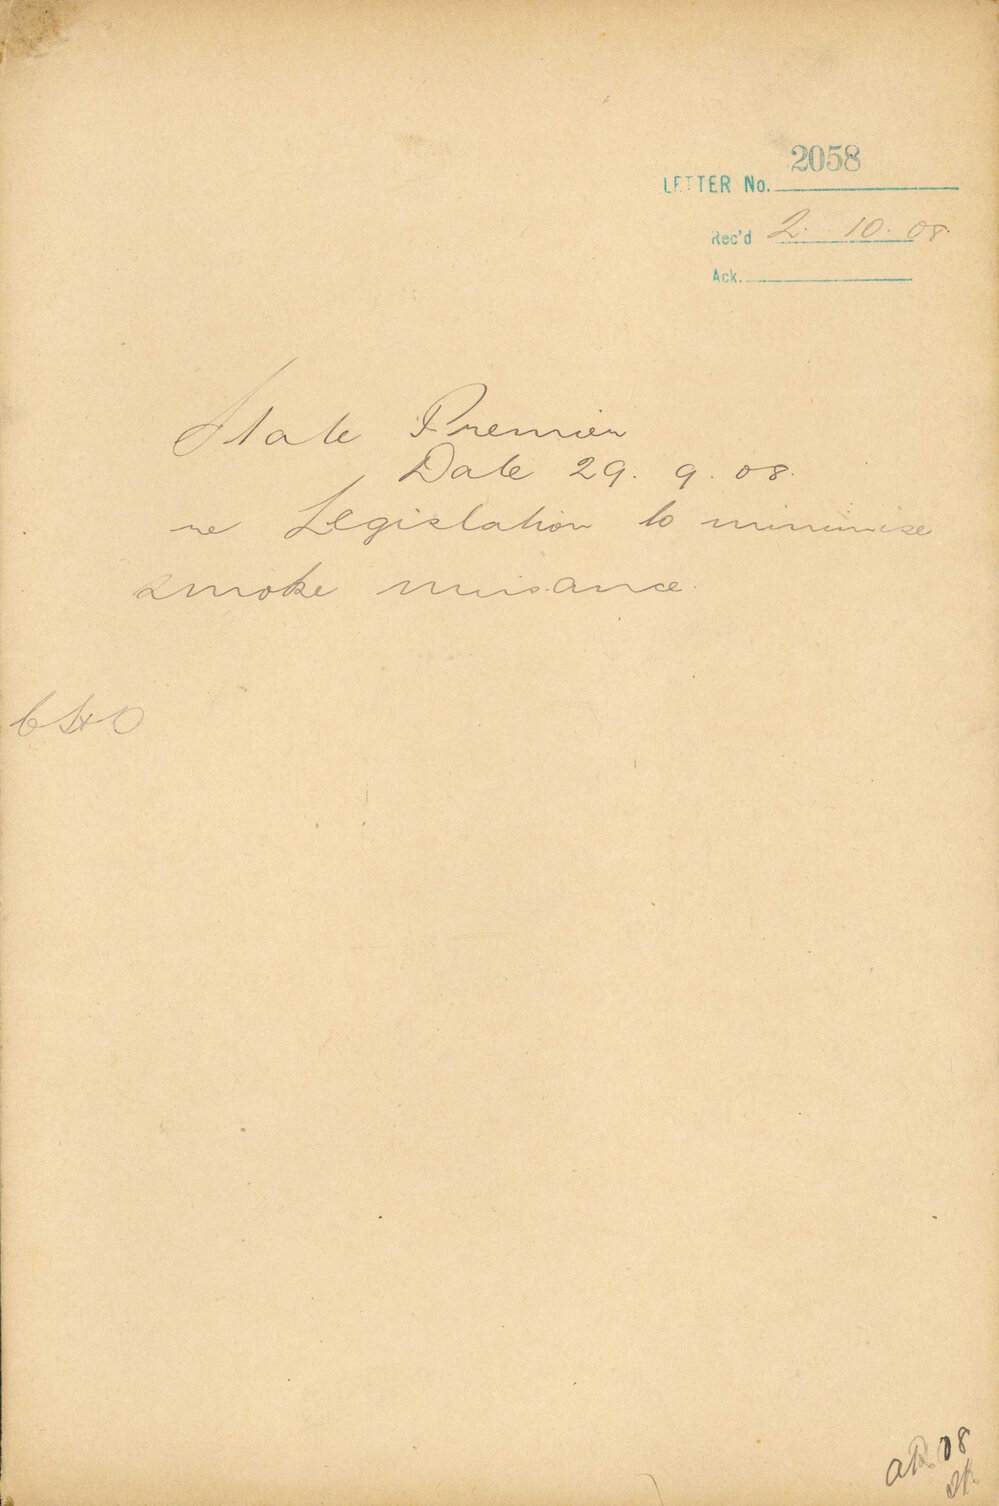 2058
LETTER No.
Rec'd 2. 10. 08.
Ack.
State Premier
Date 29. 9. 08.
re Legislation to minimise
smoke nuisance.
CHO